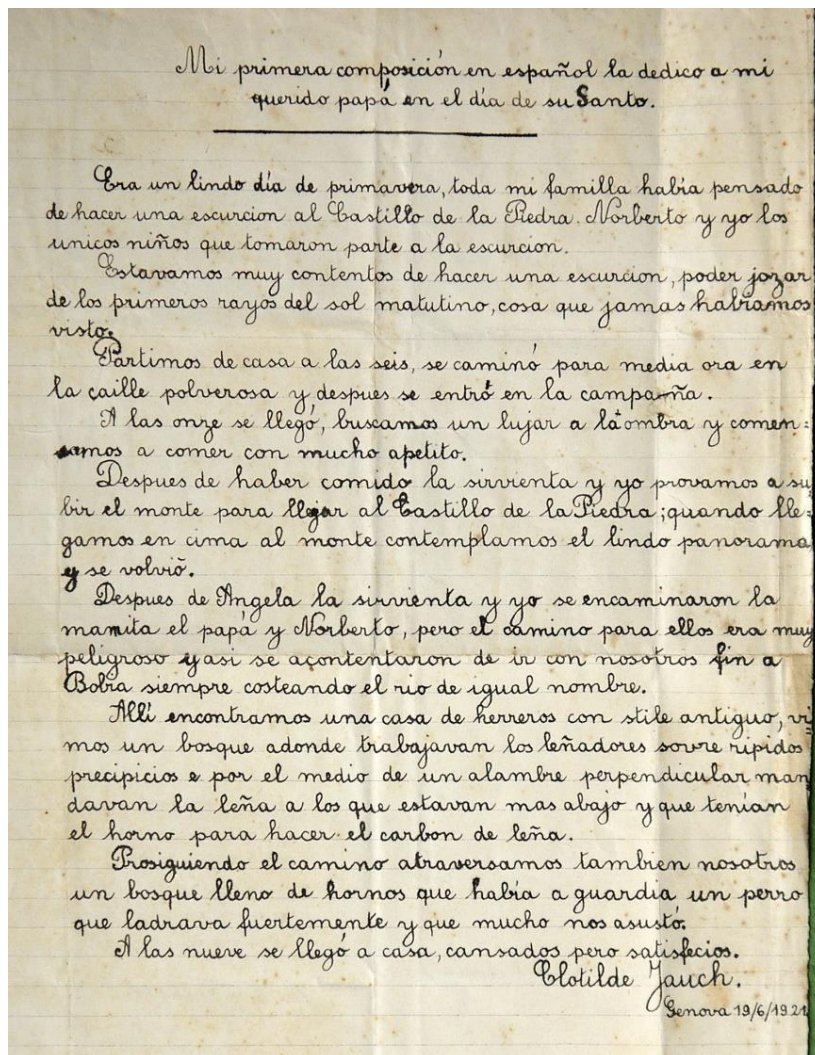 Mi primera composición en español la dedico a mi
querido papá en el día de su Santo.
Era un lindo día de primavera, toda mi familla había pensado
de hacer una escurcion al Castillo de la Piedra. Norberto y yo los
unicos niños que tomaron parte a la escurcion.
Estavamos muy contentos de hacer una escurcion, poder jozar
de los primeros rayos del sol matutino, cosa que jamas habiamos
visto.
Partimos de casa a las seis, se caminó para media ora en
la caille polverosa y despues se entró en la campaña.
A las onze se llegó, buscamos un lujar a la ombra y comen=
samos a comer con mucho apetito.
Despues de haber comido la sirvienta y yo provamos a su
bir el monte para llegar al Castillo de la Piedra; quando lle=
gamos en cima al monte contemplamos el lindo panorama,
y se volvió.
Despues de Angela la sirvienta y yo se encaminaron la
mamita el papá y Norberto, pero el camino para ellos era muy
peligroso y asi se acontentaron de ir con nosotros fin a
Bobra siempre costeando el rio de igual nombre.
Allí encontramos una casa de herreros con stile antiguo, vi=
mos un bosque adonde trabajavan los leñadores sovre ripidos
precipicios e por el medio de un alambre perpendicular man
davan la leña a los que estavan mas abajo y que tenían
el horno para hacer el carbon de leña.
Prosiguiendo el camino atraversamos tambien nosotros
un bosque lleno de hornos que había a guardia un perro
que ladrava fuertemente y que mucho nos asustó.
A las nueve se llegó a casa, cansados pero satisfecios.
Clotilde Jauch.
Genova 19/6/1921